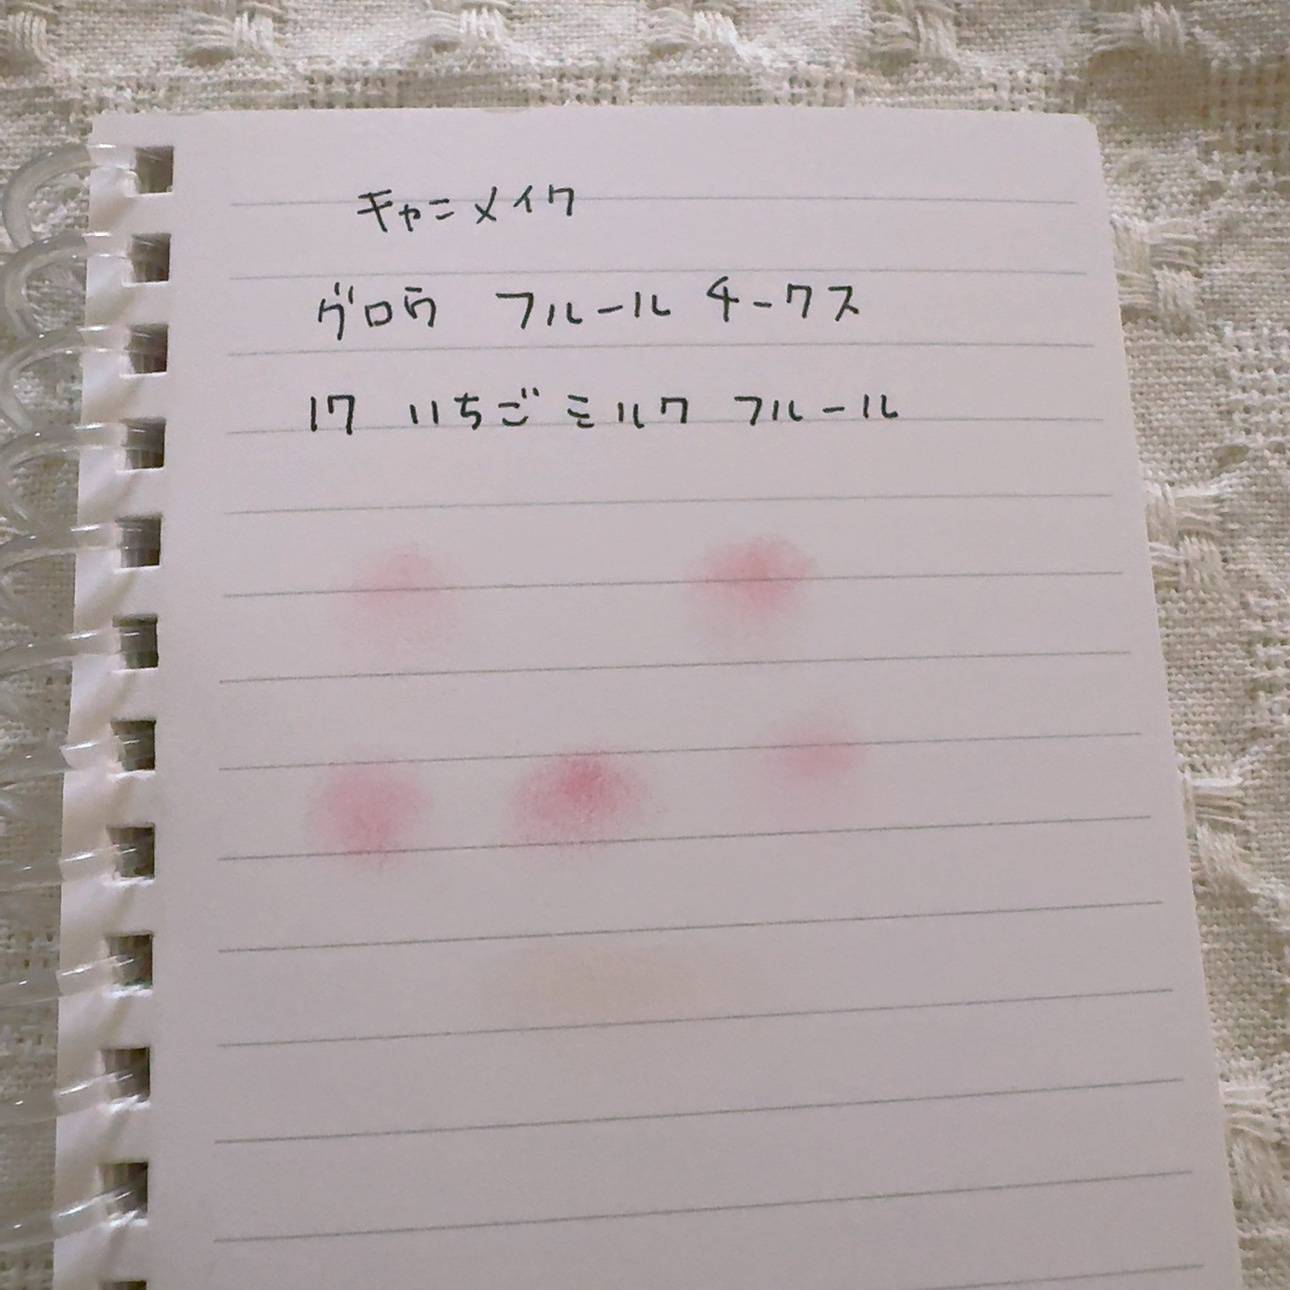 キャンメイク
グロウ フルール チークス
17 いちごミルク フルール